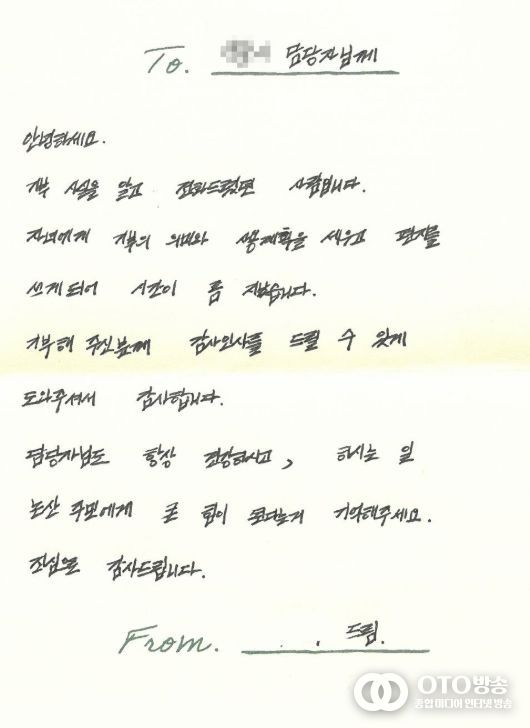 To. 담당자님께
안녕하세요.
기부 사실을 알고 전화드렸던 사람입니다.
자녀에게 기부의 의미와 사용계획을 세우고 편지를
쓰게되어 시간이 좀 지났습니다.
기부해 주신분께 감사인사를 드릴 수 있게
도와주셔서 감사합니다.
담당자님도 항상 건강하시고, 하시는 일
논산 주민에게 큰 힘이 된다는거 기억해주세요.
진심으로 감사드립니다.
From. . . 드림.
OTO방송
종합 미디어 인터넷 방송